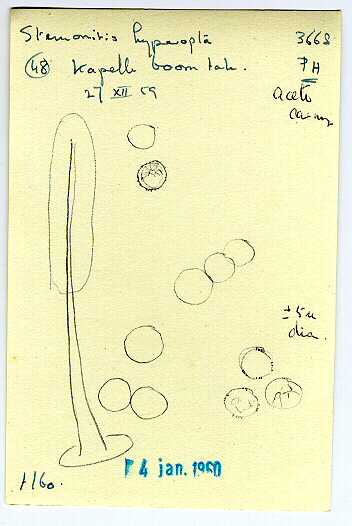 Stemonitis hyperopta 3668
(48) Kapelle boom tak. PH
27 XII 59 Aceto
±5µ
dia.
4 jan. 1960
1/60.